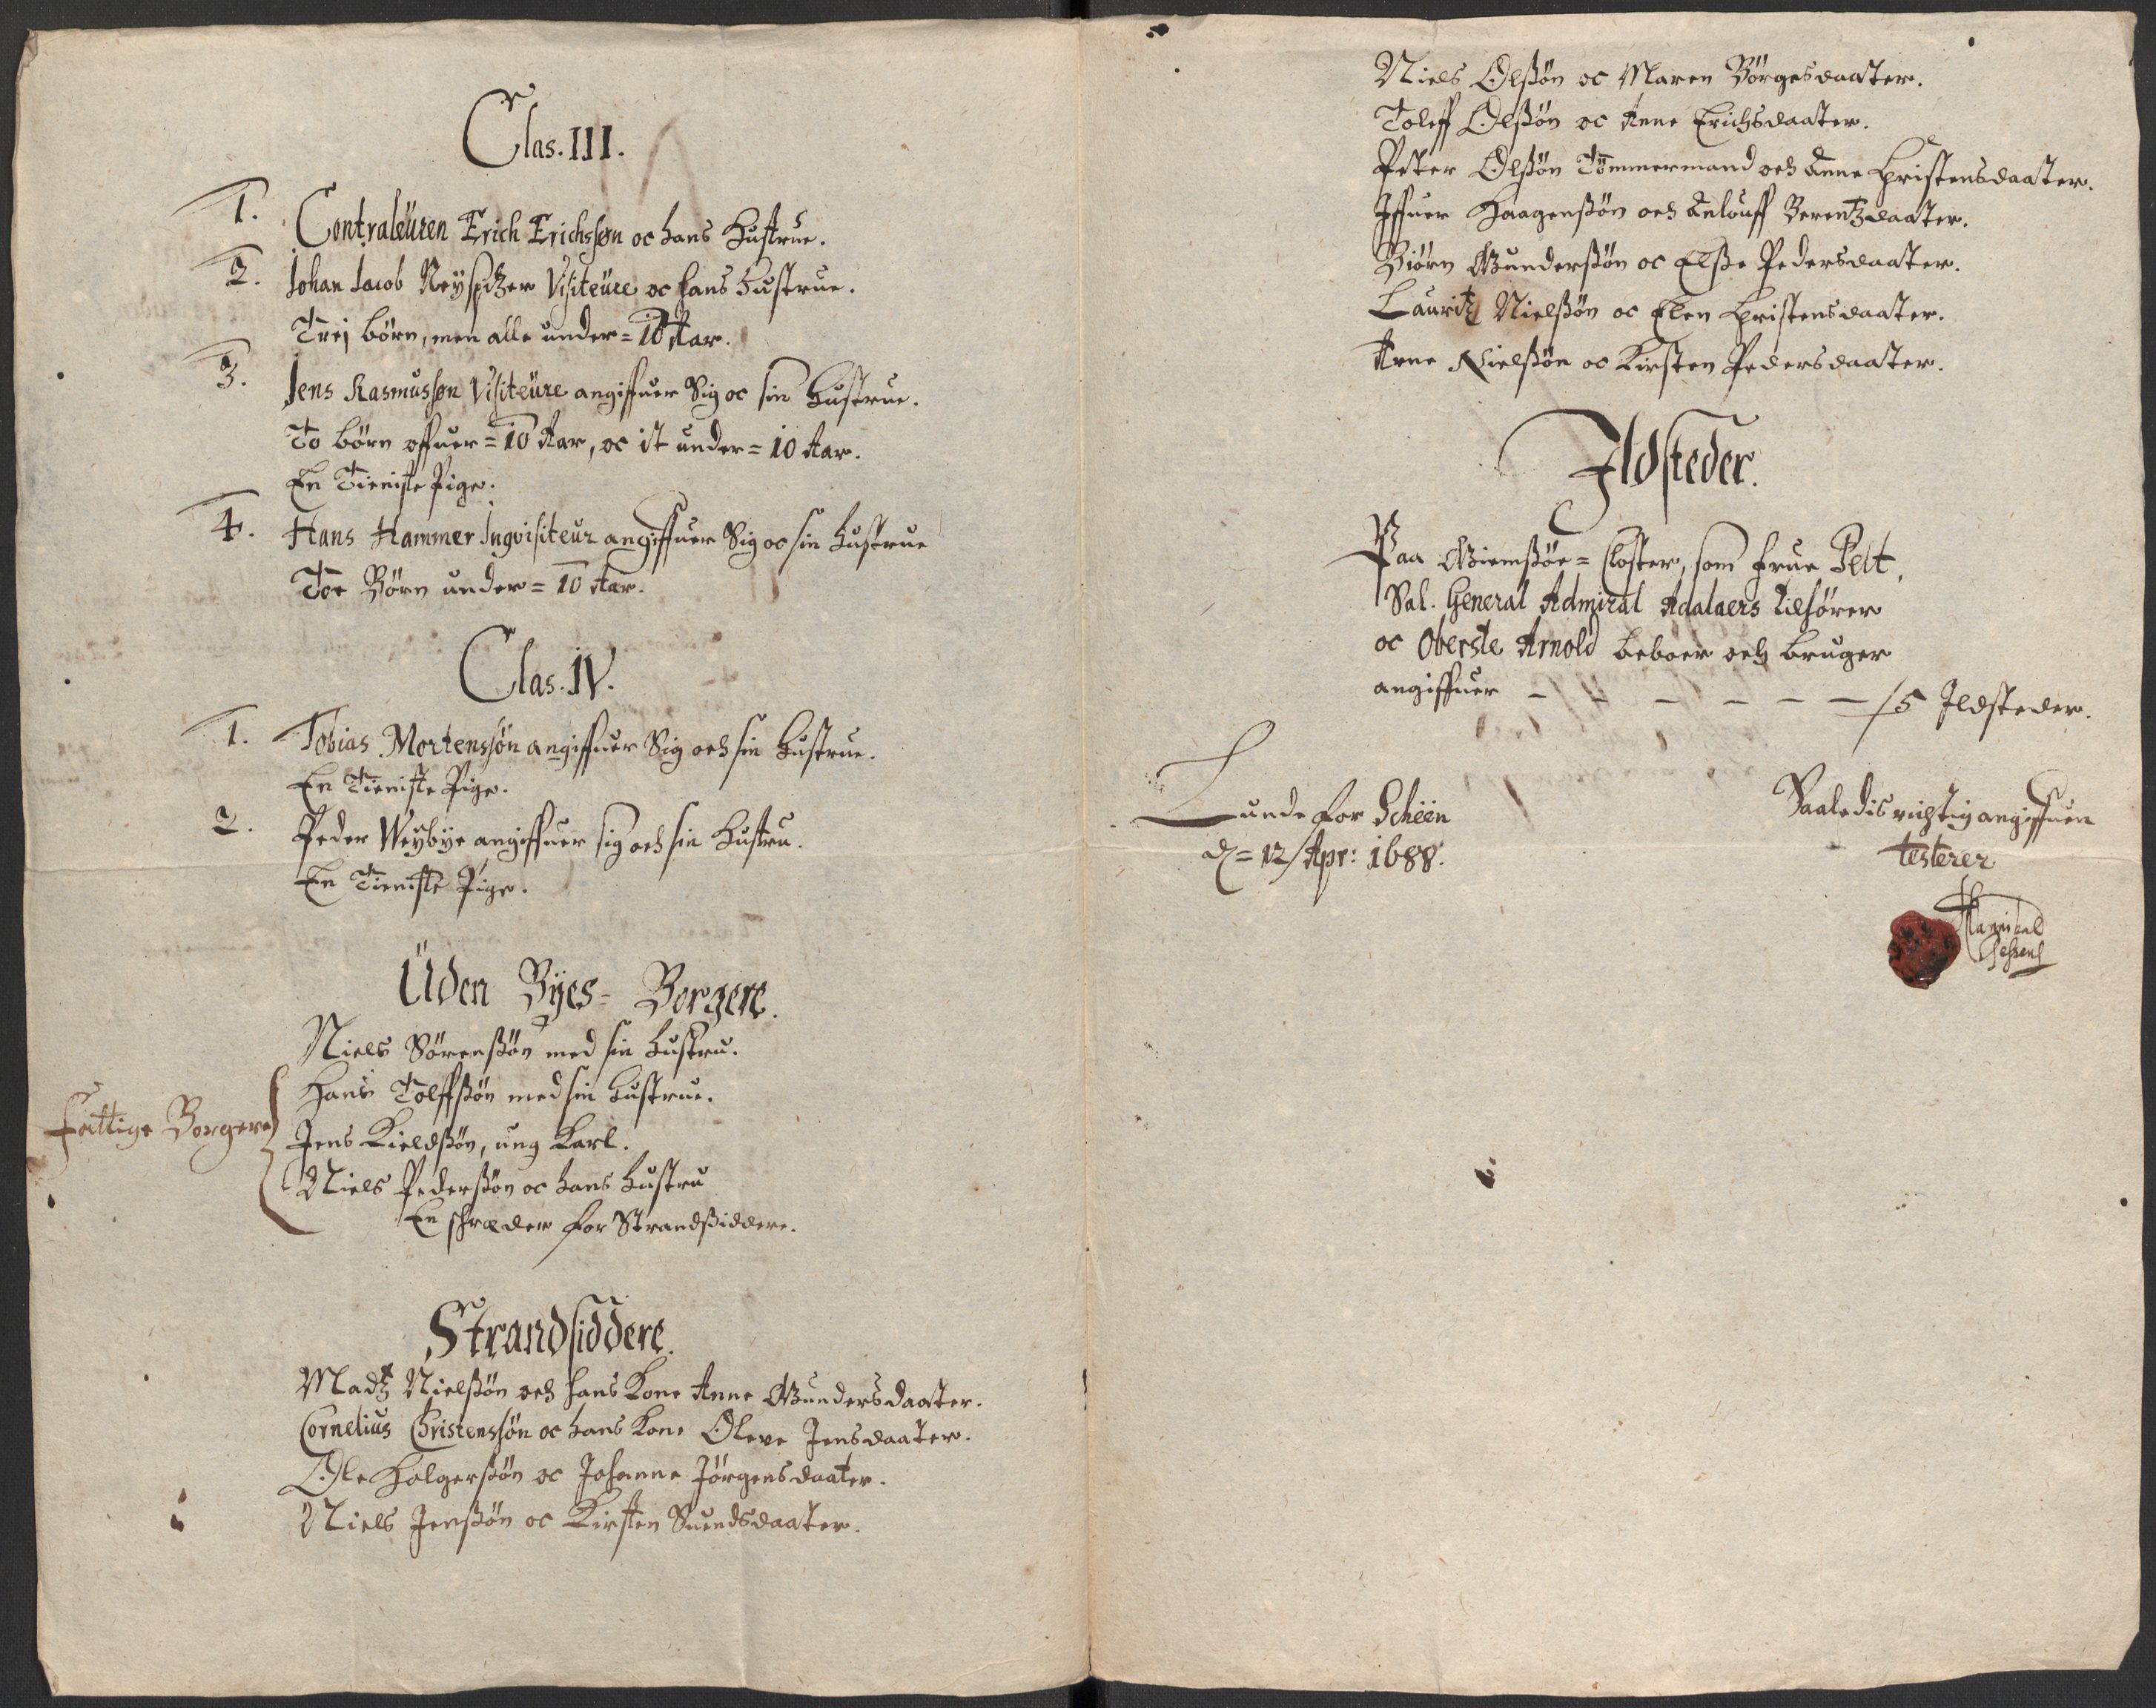 Clas. III.
1. Contraleüren Erich Erichssøn oc hans Hustrue.
2. Johan Jacob Neyspitzer Visiteüre oc hans Hustrue.
Trej börn, men alle under = 10 Aar.
3. Jens Rasmussøn Visiteüre angiffuer Sig oc sin Hustrue.
To börn offuer = 10 Aar, oc it under = 10 Aar.
En Tieniste Pige.
4. Hans Hammer Inqvisiteur angiffuer Sig oc sin Hustrue
Toe Börn under = 10 Aar.
Clas. IV.
1. Tobias Mortenssön angiffuer Sig och sin Hustrue.
En Tieniste Pige.
2. Peder Weybye angiffuer sig och sin Hustru.
En Tieniste Pige.
Uden Byes = Borgere.
Niels Sörenssön med sin Hustru.
Hans Tolffssön med sin Hustrue.
Fattige Borgere
Jens Kieldssön, ung Karl.
Niels Pederssön oc hans Hustru
En skræder for Strandsiddere.
Strandsiddere.
Madtz Nielssön och hans Kone Anne Gundersdaater.
Cornelius Christenssön oc hans Kone Oleve Jensdaater.
Ole Holgerssön oc Johanne Jörgensdaater.
Niels Jenssön oc Kirsten Suendsdaater.
Niels Olssön oc Maren Börgesdaater.
Toleff Olssön oc Anne Erichsdaater.
Peter Olssön Tömmermand och Anne Christensdaater.
Iffuer Haagenssön och Anlouff Berentzdaater.
Biörn Gunderssön oc Elsse Pedersdaater.
Lauritz Nielssön oc Elen Christensdaater.
Arne Nielssön oc Kirsten Pedersdaater.
Ildsteder.
Paa Giemssöe = Closter, som Frue Pelt,
Sal. General Admiral Adalaers tilhörer
oc Oberste Arnold beboer och bruger
angiffuer - - - - - - - 15 Ildsteder.
Lunde for Scheen
d = 12 Apr: 1688.
Saaledis richtig angiffuen
testerer